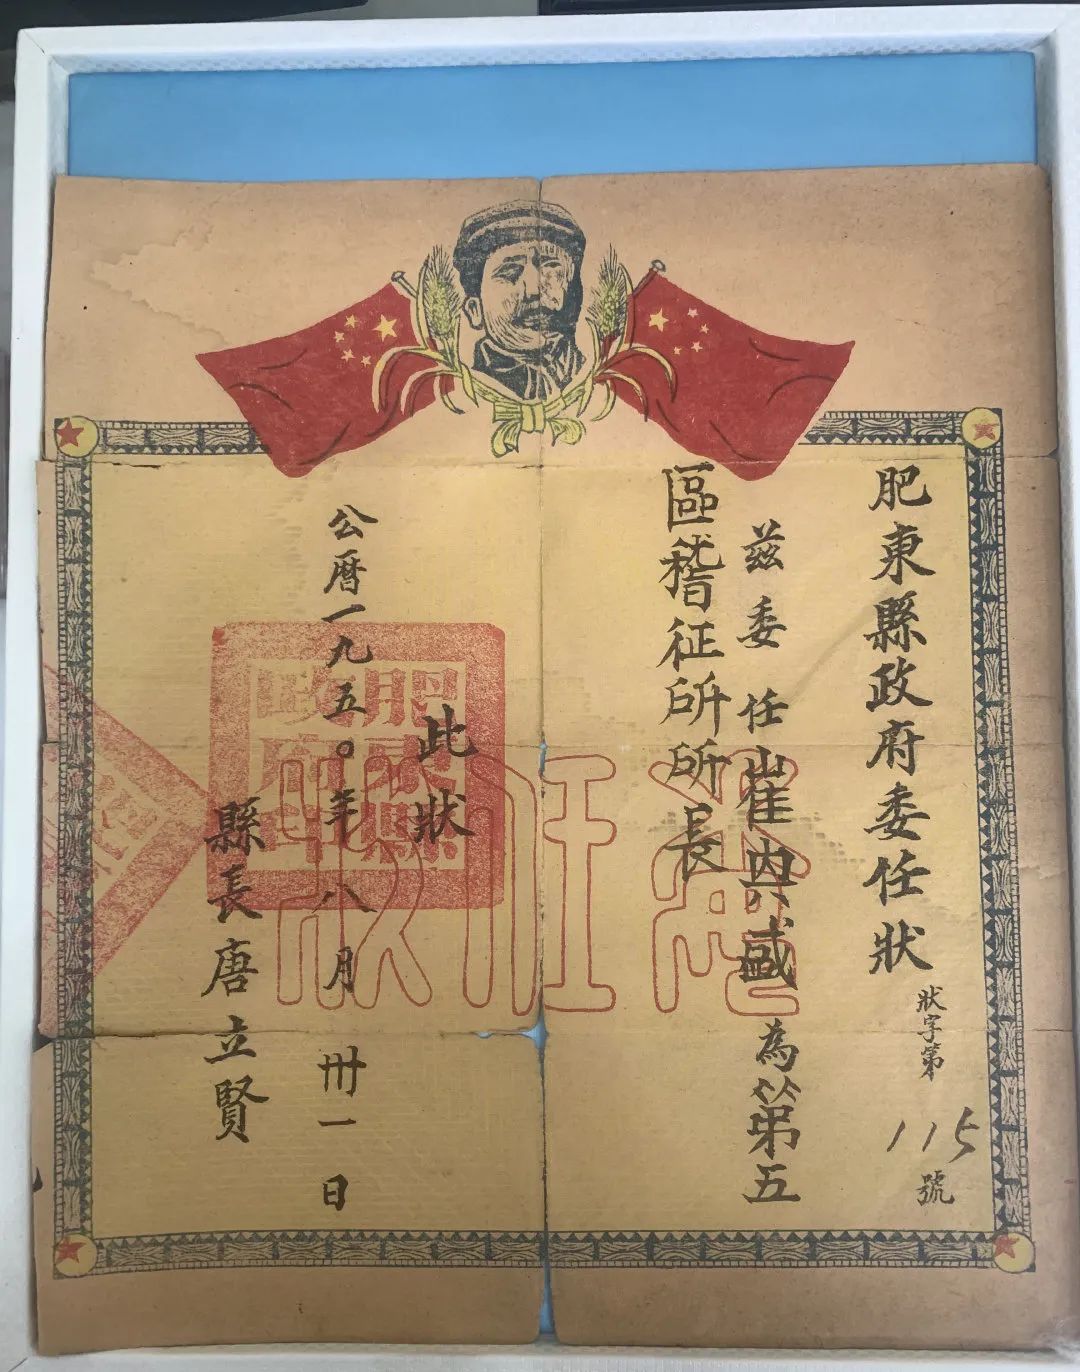 肥東縣政府委任狀
狀字第115號
茲委任崔內盛為第五
區稽征所所長
此狀
公曆一九五〇年八月卅一日
縣長唐立賢
委任狀
肥東縣政府印